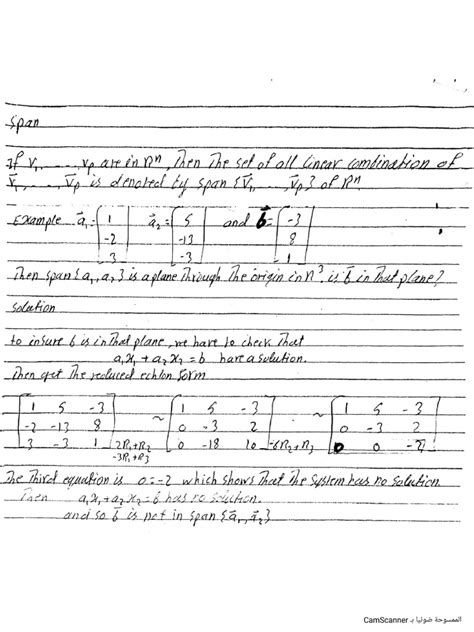 Span
If v₁, ....., vp are in Rⁿ, Then The set of all linear combination of
v⃗₁, ....., v⃗p is denoted by span {v⃗₁, ....., v⃗p} of Rⁿ
Example a⃗₁ = [1 -2 3] a⃗₂ = [5 -13 -3] and b⃗ = [-3 8 1]
Then span{a₁, a₂} is a plane Through The origin in R³. is b⃗ in That plane?
solution
to insure b is in That plane, we have to check That
a₁x₁ + a₂x₂ = b have a solution.
Then get The reduced echlon form
[1 5 -3 ~ [1 5 -3 ~ [1 5 -3
-2 -13 8 0 -3 2 0 -3 2
3 -3 1] 2R₁+R₂ 0 -18 10] -6R₂+R₃ 0 0 -2]
-3R₁+R₃
The Third equation is 0=-2 which shows That The System has no solution
Then a₁x₁ + a₂x₂ = b has no solution.
and so b⃗ is not in span {a⃗₁, a⃗₂}
الممسوحة ضوئيا بـ CamScanner